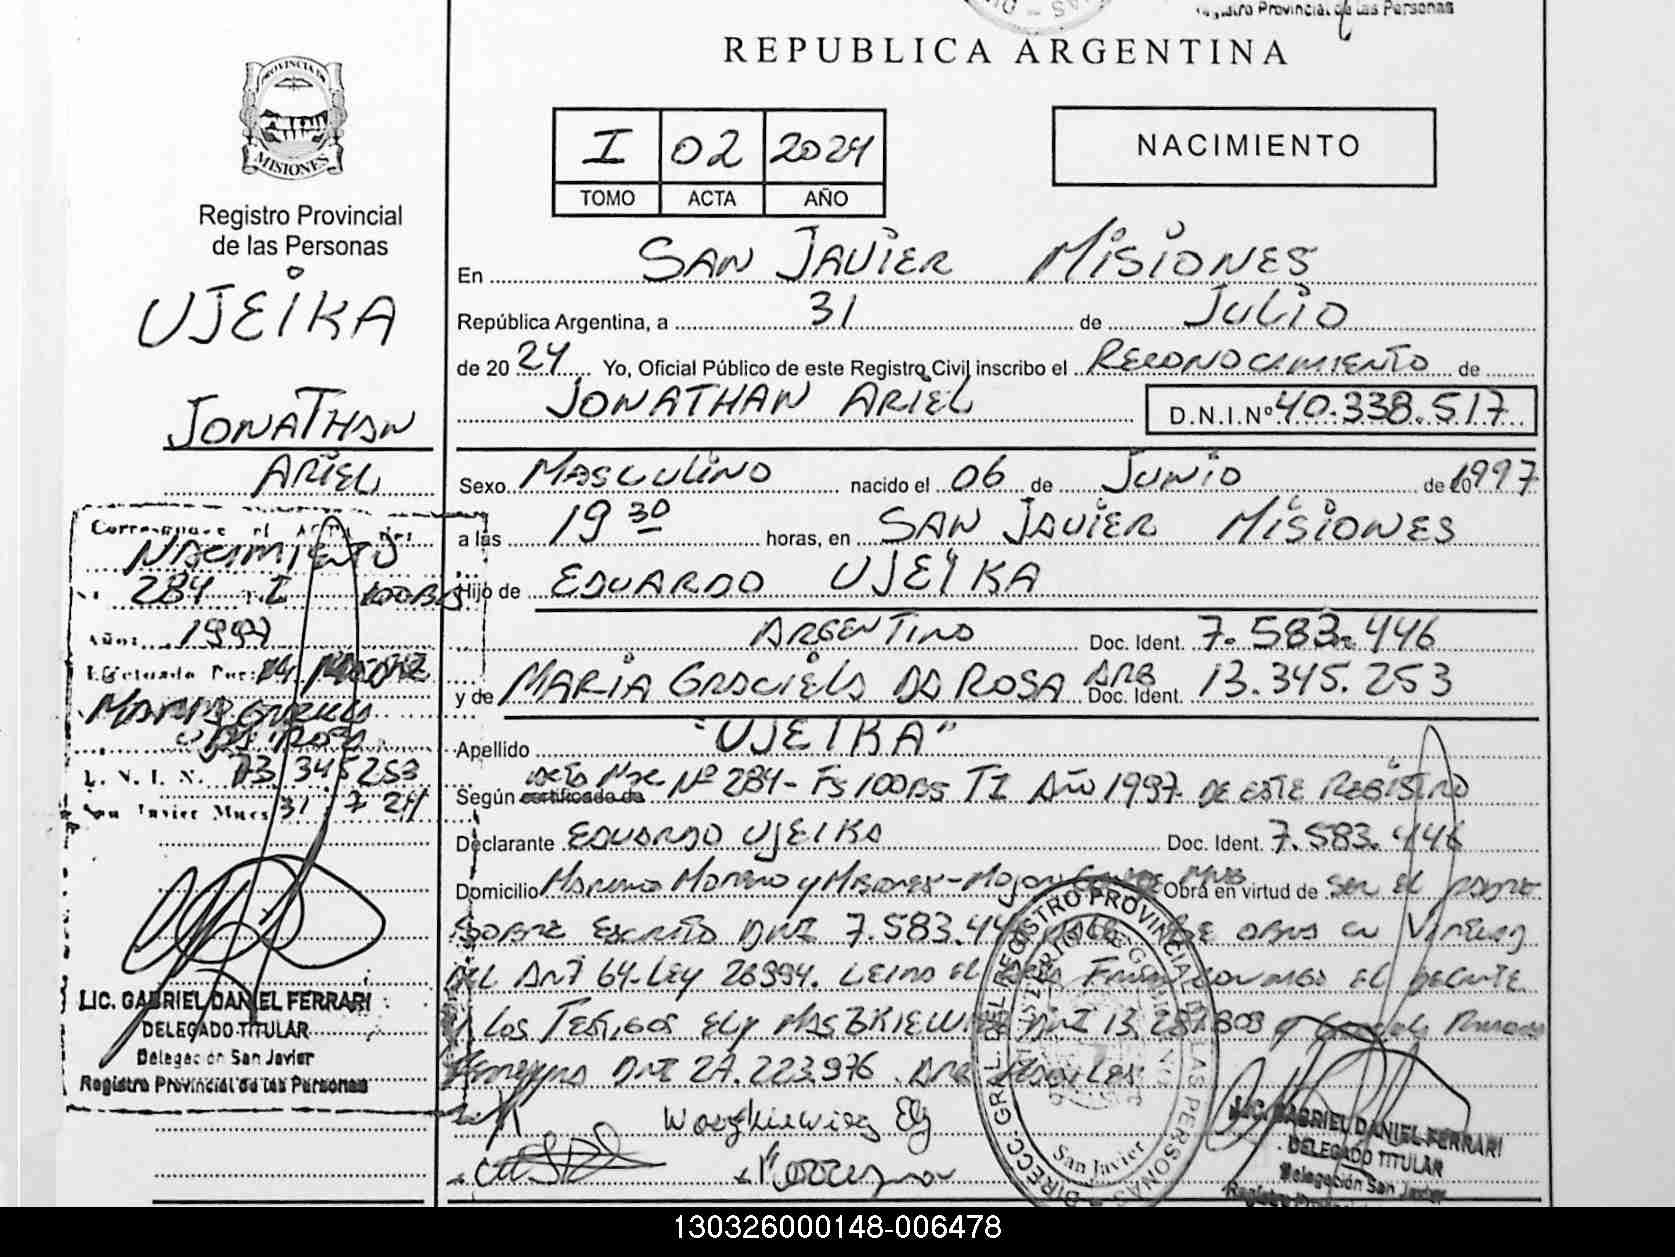 Registro Provincial de las Personas
REPUBLICA ARGENTINA
PROVINCIA DE
MISIONES
Registro Provincial
de las Personas
UJEIKA
JONATHAN
ARIEL
I 02 2024
TOMO ACTA AÑO
NACIMIENTO
En SAN JAVIER MISIONES
República Argentina, a 31 de JULIO
de 20 24 Yo, Oficial Público de este Registro Civil inscribo el RECONOCIMIENTO de
JONATHAN ARIEL D.N.I.Nº 40.338.517
Sexo MASCULINO nacido el 06 de JUNIO de 1997
a las 19 30 horas, en SAN JAVIER MISIONES
Hijo de EDUARDO UJEIKA
ARGENTINO Doc. Ident. 7.583.446
y de MARIA GRACIELA DA ROSA ARG Doc. Ident. 13.345.253
Apellido "UJEIKA"
Según certificado de Acta Nac Nº 284 - Fs 100BIS TI Año 1997 DE ESTE REGISTRO
Declarante EDUARDO UJEIKA Doc. Ident. 7.583.446
Domicilio Moreno y Misiones - Mojon Grande Mns Obra en virtud de Ser el padre
Sobre Escrito DNI 7.583.44 Vale Se obra en Virtud
del Art 64 Ley 26994. Leida el Acta Firman conmigo el
y Los Testigos Ely DNI 13.
DNI 27.223.976
Corresponde el Acta de:
NACIMIENTO
284 T. I 100BIS
Año: 1997
Efectuado Por:
D. N. I. N. 13.345.253
San Javier Mnes 31 7 24
LIC. GABRIEL DANIEL FERRARI
DELEGADO TITULAR
Delegación San Javier
Registro Provincial de las Personas
DIRECC. GRAL. DEL REGISTRO PROVINCIAL DE LAS PERSONAS
San Javier
LIC. GABRIEL DANIEL FERRARI
DELEGADO TITULAR
Delegación San Javier
130326000148-006478